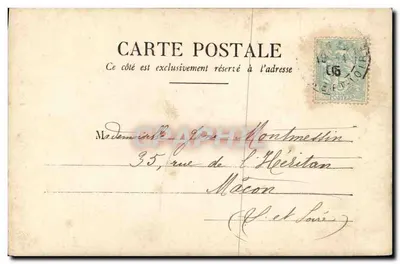 CARTE POSTALE
Ce côté est exclusivement réservé à l'adresse
06
Montmessin
35, rue de l'Héritan
Mâcon
(S. et Loire)